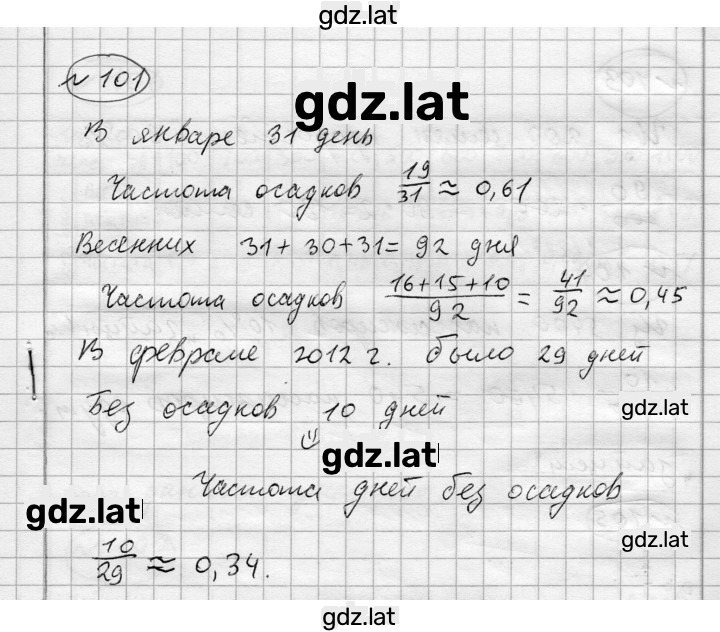 gdz.lat
№ 101
gdz.lat
В январе 31 день
Частота осадков 19/31 ≈ 0,61
Весенних 31 + 30 + 31 = 92 дня
Частота осадков (16+15+10)/92 = 41/92 ≈ 0,45
В феврале 2012 г. было 29 дней
Без осадков 10 дней
gdz.lat
gdz.lat
Частота дней без осадков
gdz.lat
10/29 ≈ 0,34.
gdz.lat
gdz.lat